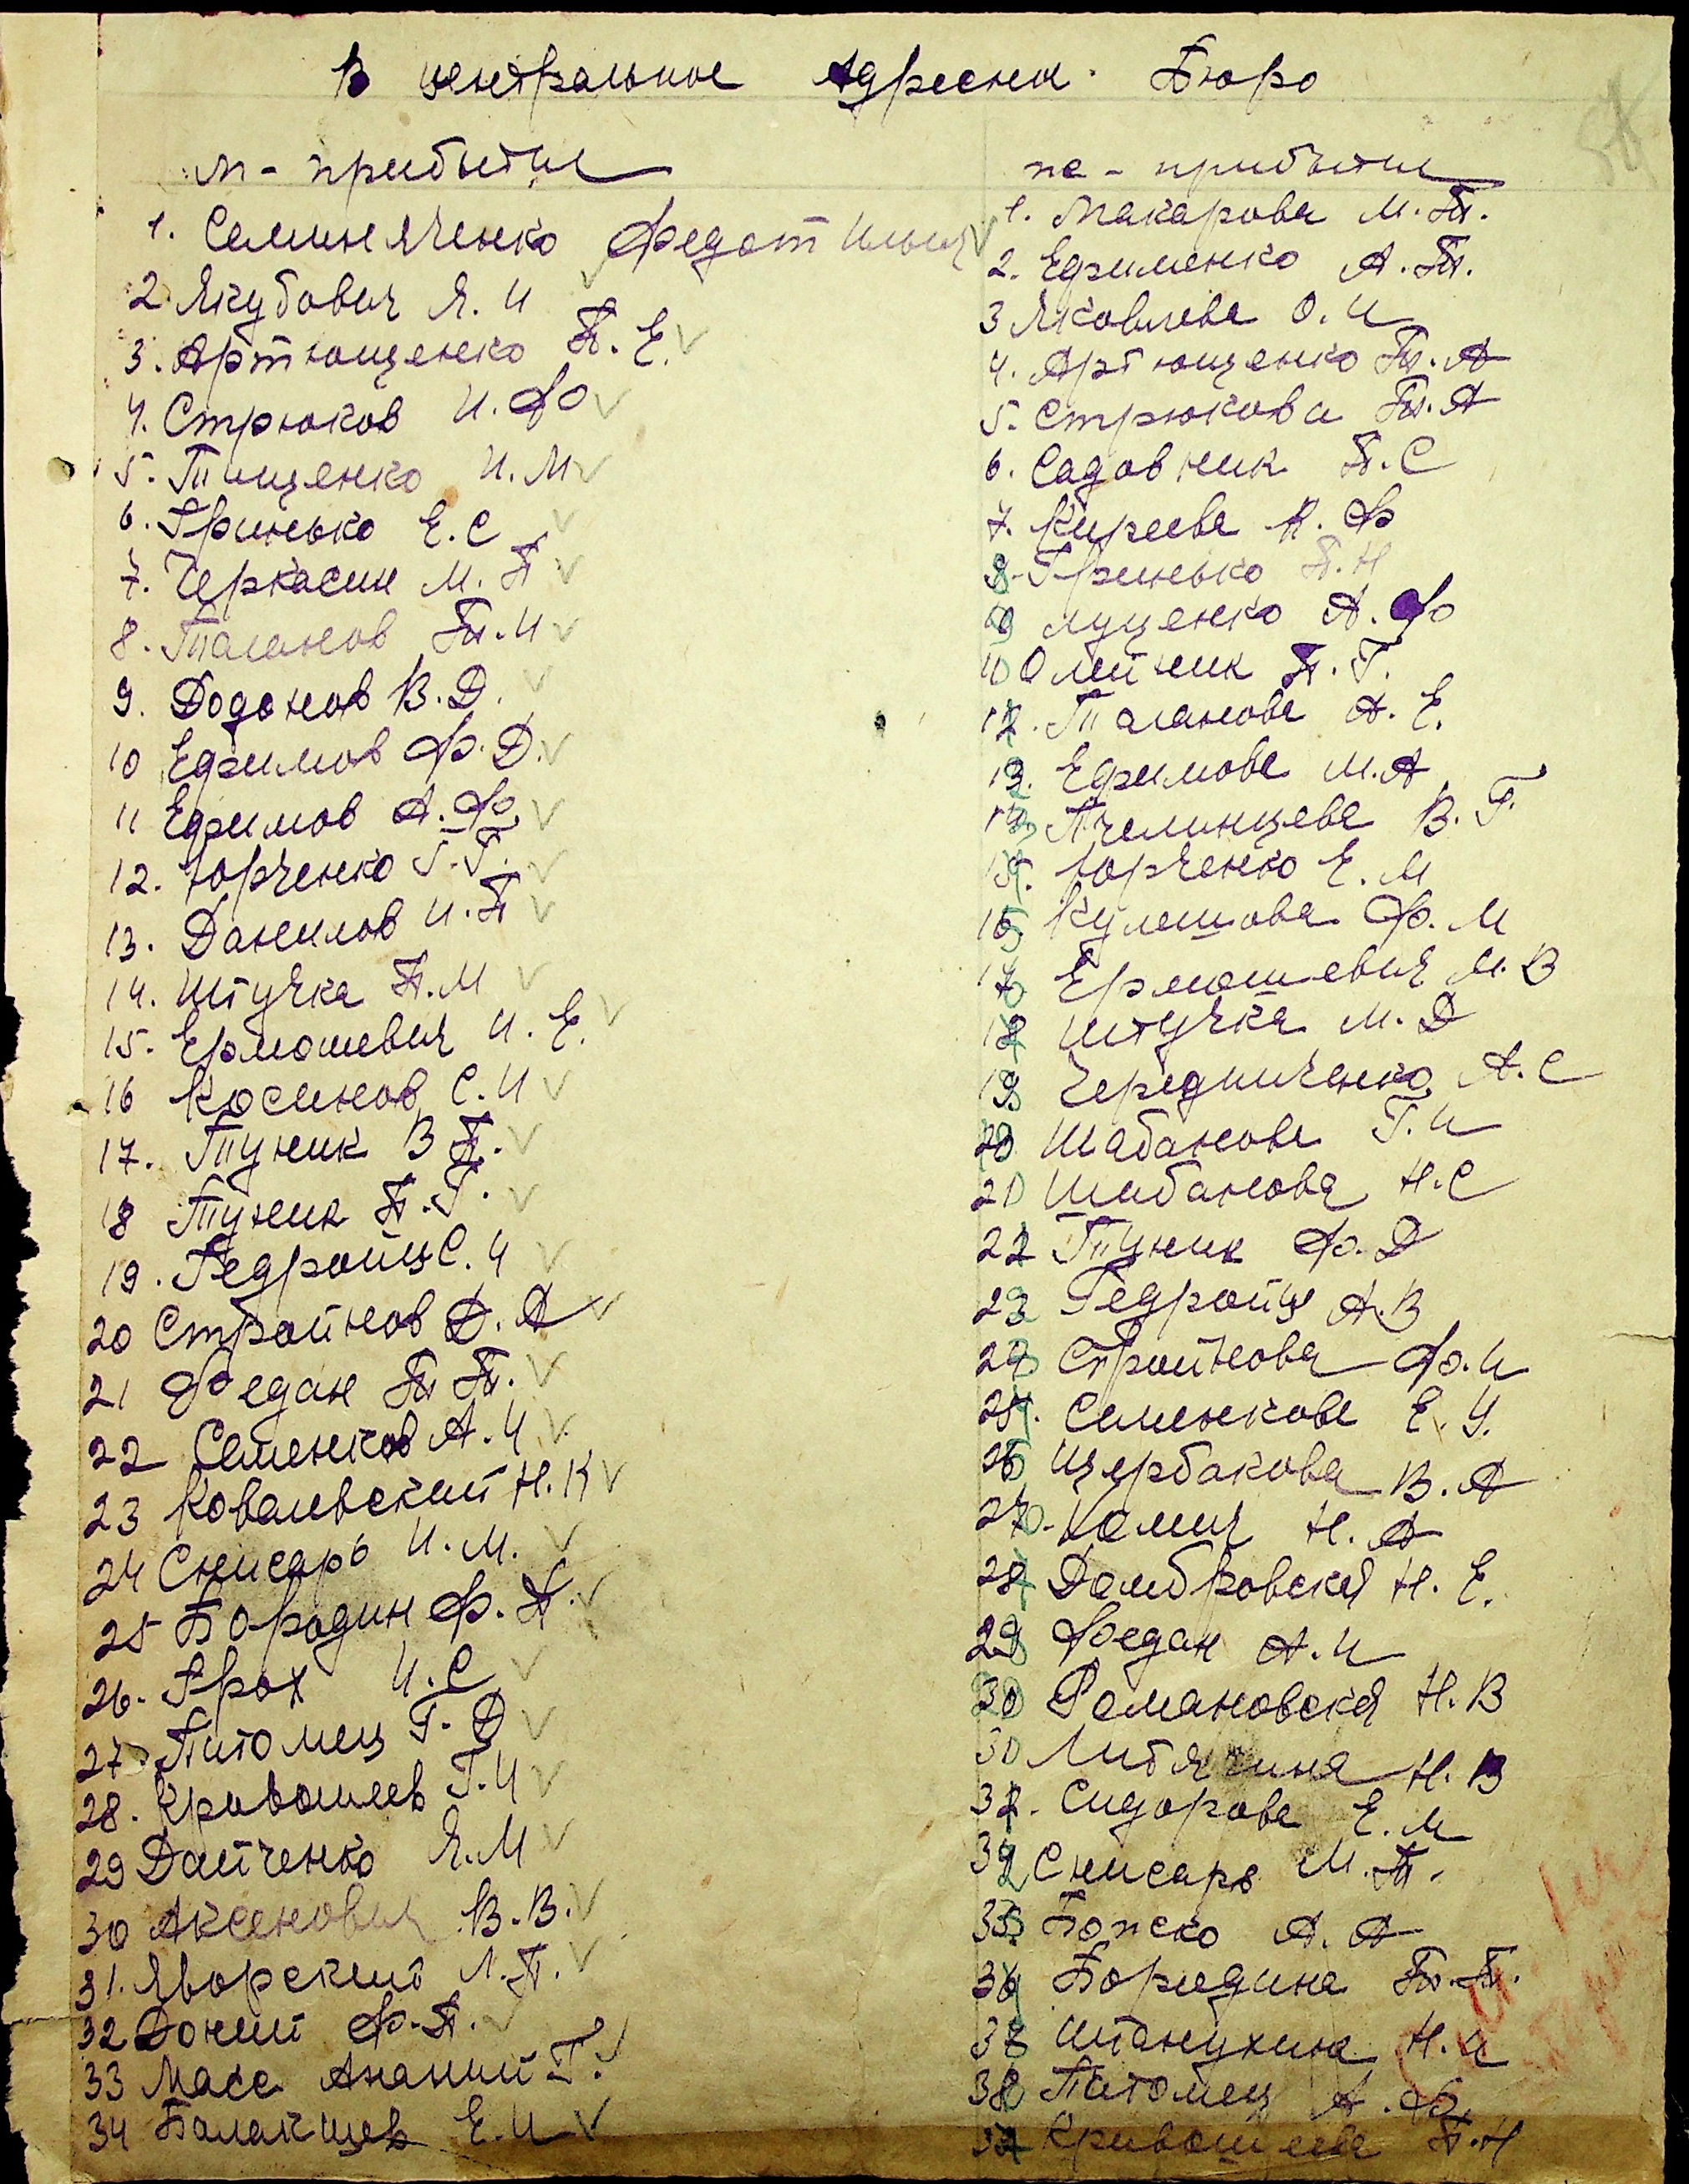 В центральное Адресн. Бюро
м - прибытие
1. Семиняченко Федот Ильич
2 Якубович Я. И
3. Артющенко П. Е.
4. Стрюков И. Ф
5. Тищенко И. М
6. Гринько Е. С
7. Черкасин М. П
8. Таланов Т. И
9. Додонов В. Д.
10 Ефимов Ф. Д.
11 Ефимов А. Ф.
12. Юрченко Г. Г.
13. Данилов И. П
14. Штучка П. М
15. Ермошевич И. Е.
16 Косинов С. И
17. Туник В П.
18 Туник П. Г.
19. Гедройц С. И
20 Стройнов Д. А
21 Федан П П.
22 Семенков А. И
23 Ковалевский Н. К
24 Снисарь И. М.
25 Бородин Ф. П.
26. Грох И. С
27. Питомец Г. Д
28. Кривошеев Г. И
29 Дайченко Я. М
30 Аксенович В. В.
31. Яворский Л. П.
32 Доний Ф. П.
33 Маса Ананий Г.
34 Балакшев Е. И
же - прибытие
1. Макарова М. Т.
2. Ефименко А. Т.
3 Яковлева О. И
4. Артющенко Т. А
5. Стрюкова Т. А
6. Садовник П. С
7. Киреева К. Ф
8. Гринько П. Н
9 Луценко А. Ф
10 Олейник П. Г.
12. Таланова А. Е.
13. Ефимова М. А
Пчелинцева В. Г.
15. Юрченко Е. М
16 Кулешова Ф. М
17 Ермошевич М. В
18 Штучка М. Д
19 Чередниченко А. С
20 Шабанова Г. И
21 Шабанова Н. С
22 Туник Ф. Д
23 Гедройц А. В
24 Стройнова Ф. И
25. Семенкова Е. У.
26 Щербакова В. А
27. Н. А
28 Домбровская Н. Е.
29 Федан А. И
30 Романовская Н. В
Литягина Н. В
32. Сидорова Е. М
Снисарь М. Т.
А. А
Бородина Т. Т.
Штанухина Н. И
38 Питомец А. Ф.
Кривошеева П. Н